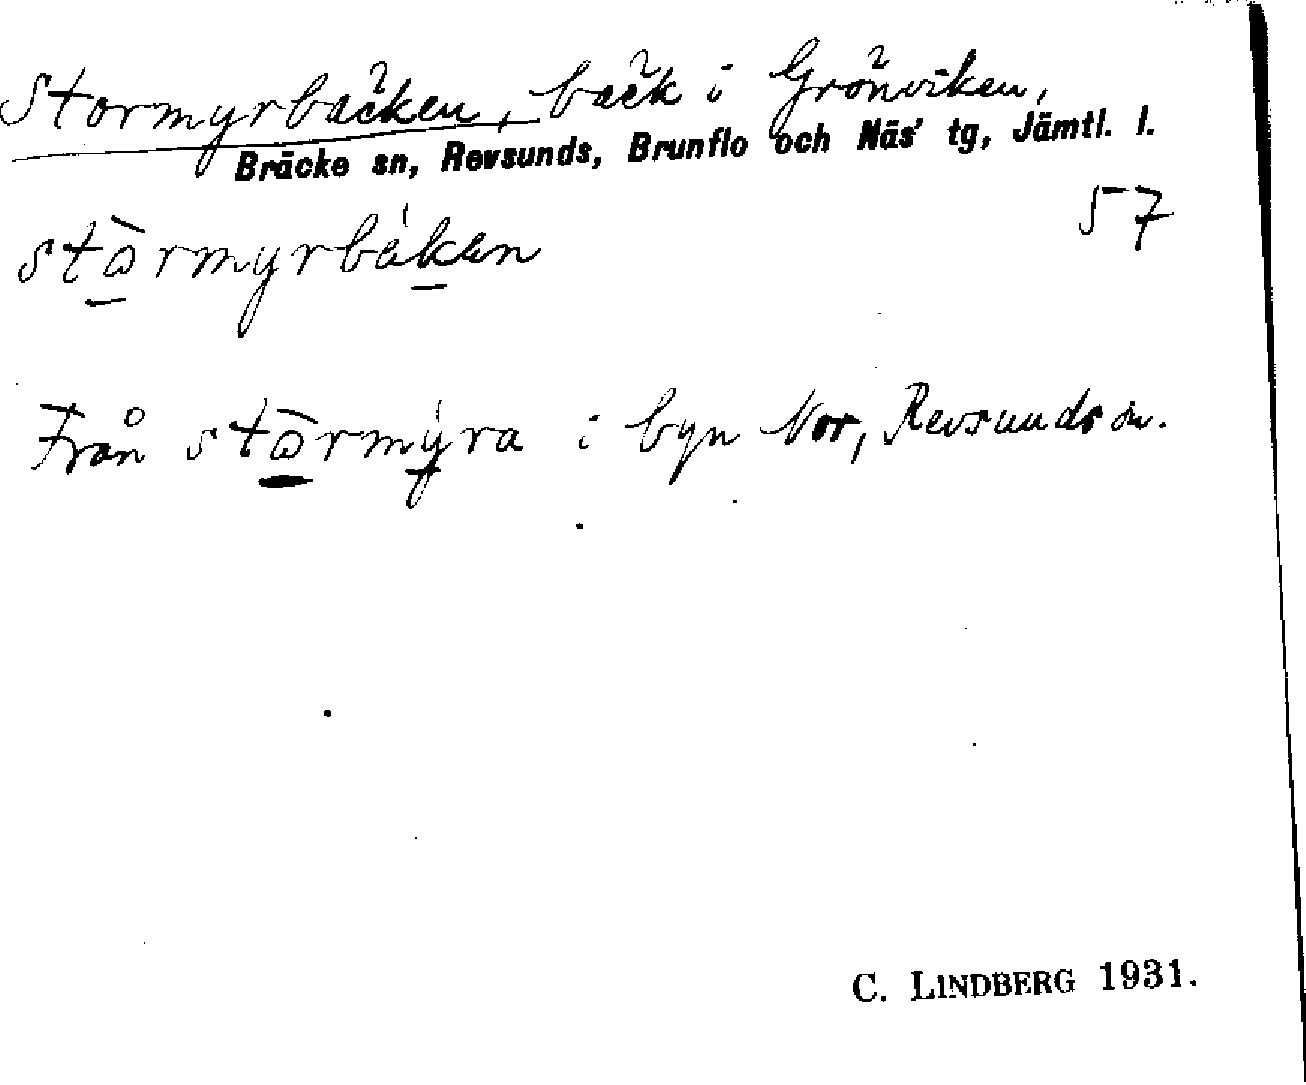 Stormyrbäcken, bäck i Grönviken,
Bräcke sn, Revsunds, Brunflo och Näs' tg, Jämtl. l.
57
stòrmyrbák̠en
Från stòrmýra i byn Nor, Revsunds sn.
C. LINDBERG 1931.